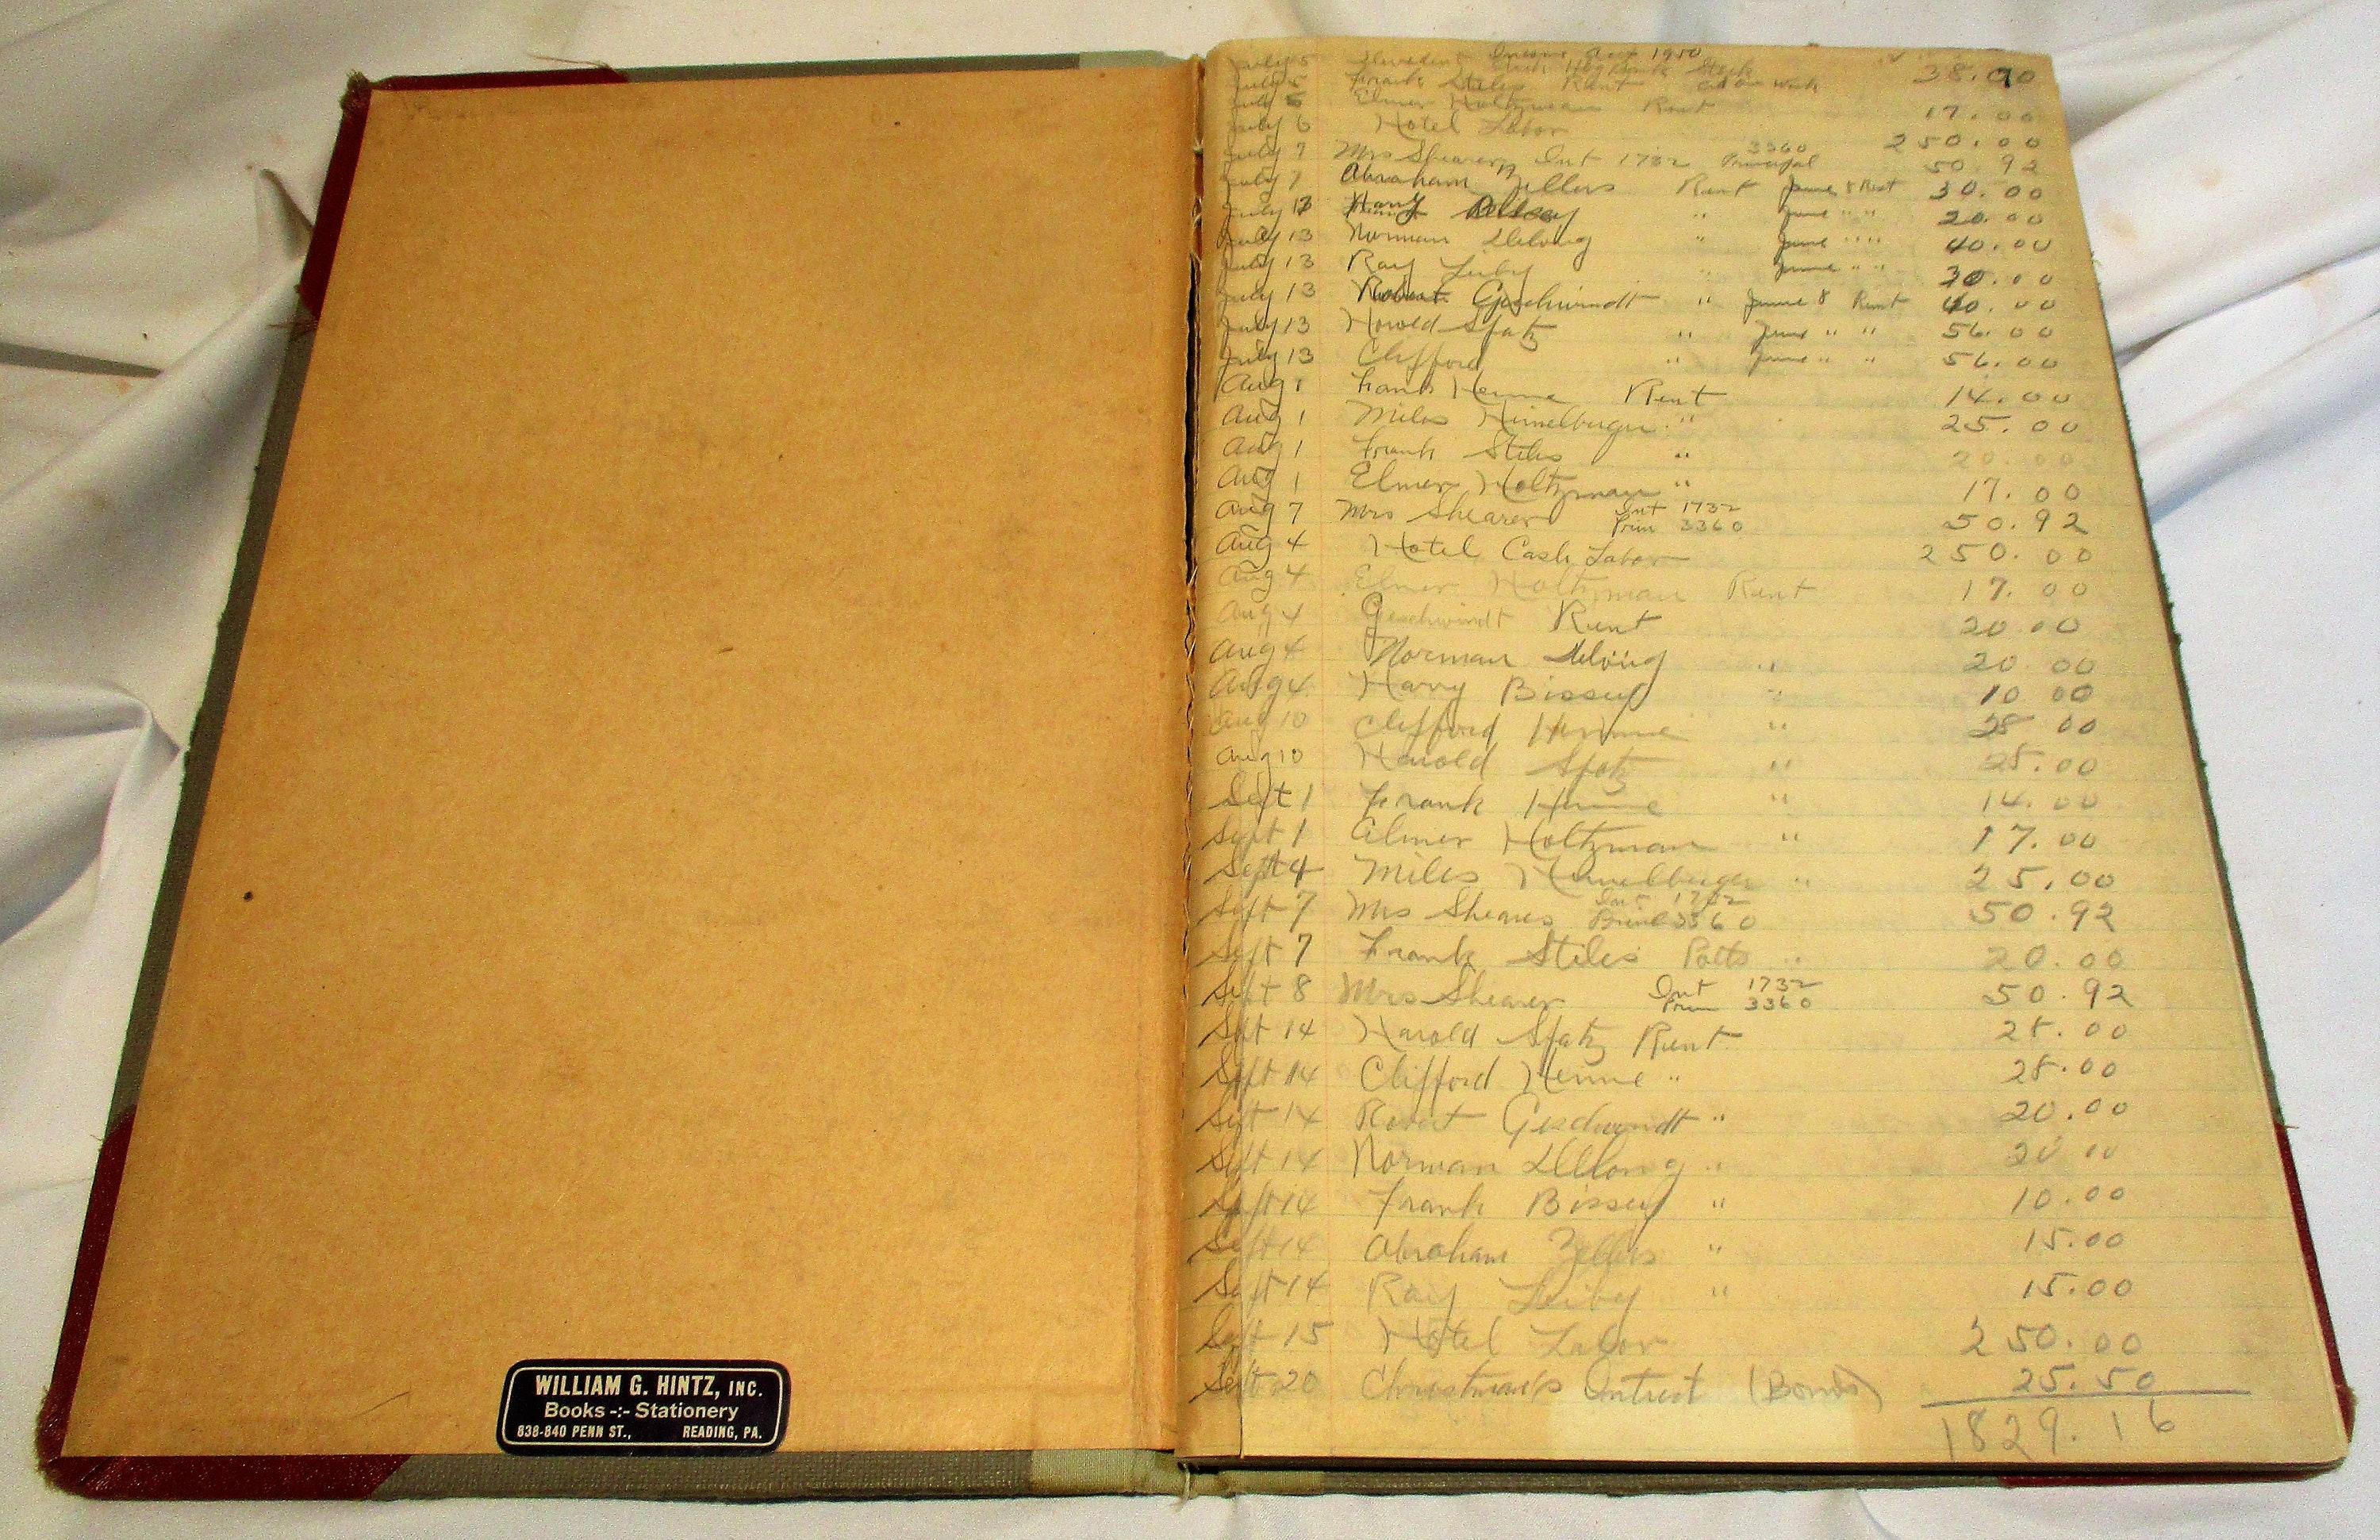 WILLIAM G. HINTZ, INC.
Books -:- Stationery
838-840 PENN ST., READING, PA.
Income 1950
July 5 Stock 38.90
July 5 Frank Stiles Rent
July 6 Elmer Holtzman Rent 17.00
July 6 Hotel Labor 250.00
July 7 Mrs Shearer Int 1732 3360 Principal 50 92
July 7 Abraham Zellers Rent June & Rent 30.00
July 13 Harry " June " " 20.00
July 13 Norman Delong " June " " 40.00
July 13 Ray Leiby " June " " 30.00
July 13 Robert Geschwindt " June & Rent 40.00
July 13 Harold Spatz " June " " 56.00
July 13 Clifford " June " " 56.00
Aug 1 Frank Henne Rent 14.00
Aug 1 Miles Himelberger " 25.00
Aug 1 Frank Stiles " 20.00
Aug 1 Elmer Holtzman " 17.00
Aug 7 Mrs Shearer Int 1732 Prin 3360 50.92
Aug 4 Hotel Cash Labor 250.00
Aug 4 Elmer Holtzman Rent 17.00
Aug 4 Geschwindt Rent 20.00
Aug 4 Norman Delong " 20 00
Aug 4 Harry Bissey " 10 00
Aug 10 Clifford Henne " 28 00
Aug 10 Harold Spatz " 28.00
Sept 1 Frank Henne " 14.00
Sept 1 Elmer Holtzman " 17.00
Sept 4 Miles Himelberger " 25.00
Sept 7 Mrs Shearer Int 1732 Prin 3360 50.92
Sept 7 Frank Stiles Potts " 20.00
Sept 8 Mrs Shearer Int 1732 Prin 3360 50.92
Sept 14 Harold Spatz Rent 28.00
Sept 14 Clifford Henne " 28.00
Sept 14 Robert Geschwindt " 20.00
Sept 14 Norman Delong " 20 00
Sept 14 Frank Bissey " 10.00
Sept 14 Abraham Zellers " 15.00
Sept 14 Ray Leiby " 15.00
Sept 15 Hotel Labor 250.00
Sept 20 Christman's Intrest (Bonds) 25.50
1829.16